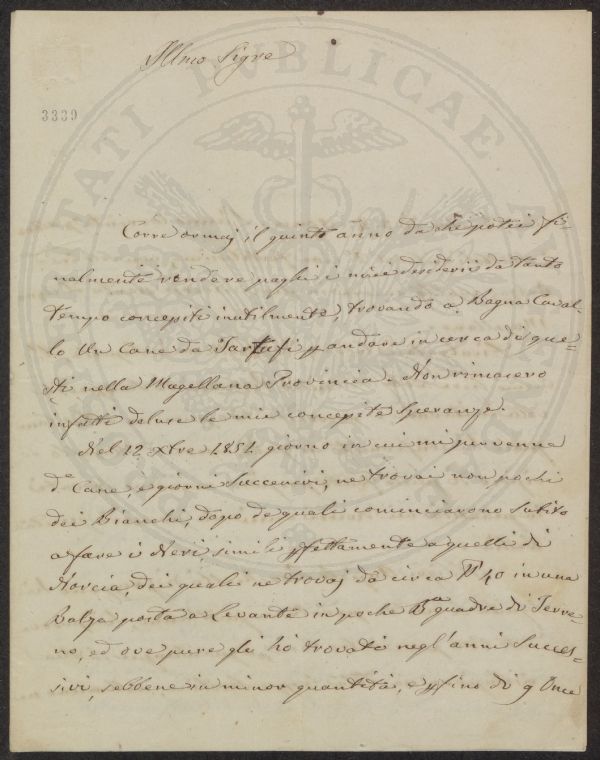 Illmo Sigre
3339
UTATI PUBLICAE
Corre ormaj il quinto anno da che potei fi-
nalmente rendere paghi i miei desiderii da tanto
tempo concepiti inutilmente, trovando a Bagna Caval-
lo Un Cane da Tartufi p andare in cerca di que-
sti nella Magellana Provincia. Non rimasero
infatti deluse le mie concepite Speranze.
Nel 12 Xbre 1851 giorno in cui mi pervenne
do Cane, e giorni Successivi, ne trovai non pochi
dei Bianchi, dopo de quali cominciarono Subito
a fare i Neri, simili pfettamente a quelli di
Norcia, dei quali ne trovaj da circa 40 in una
Balza posta a Levante in poche quadre di Terre-
no, ed ove pure gli hò trovati negl'anni Succes-
sivi, sebbene in minor quantità, e pfino di 9 Once